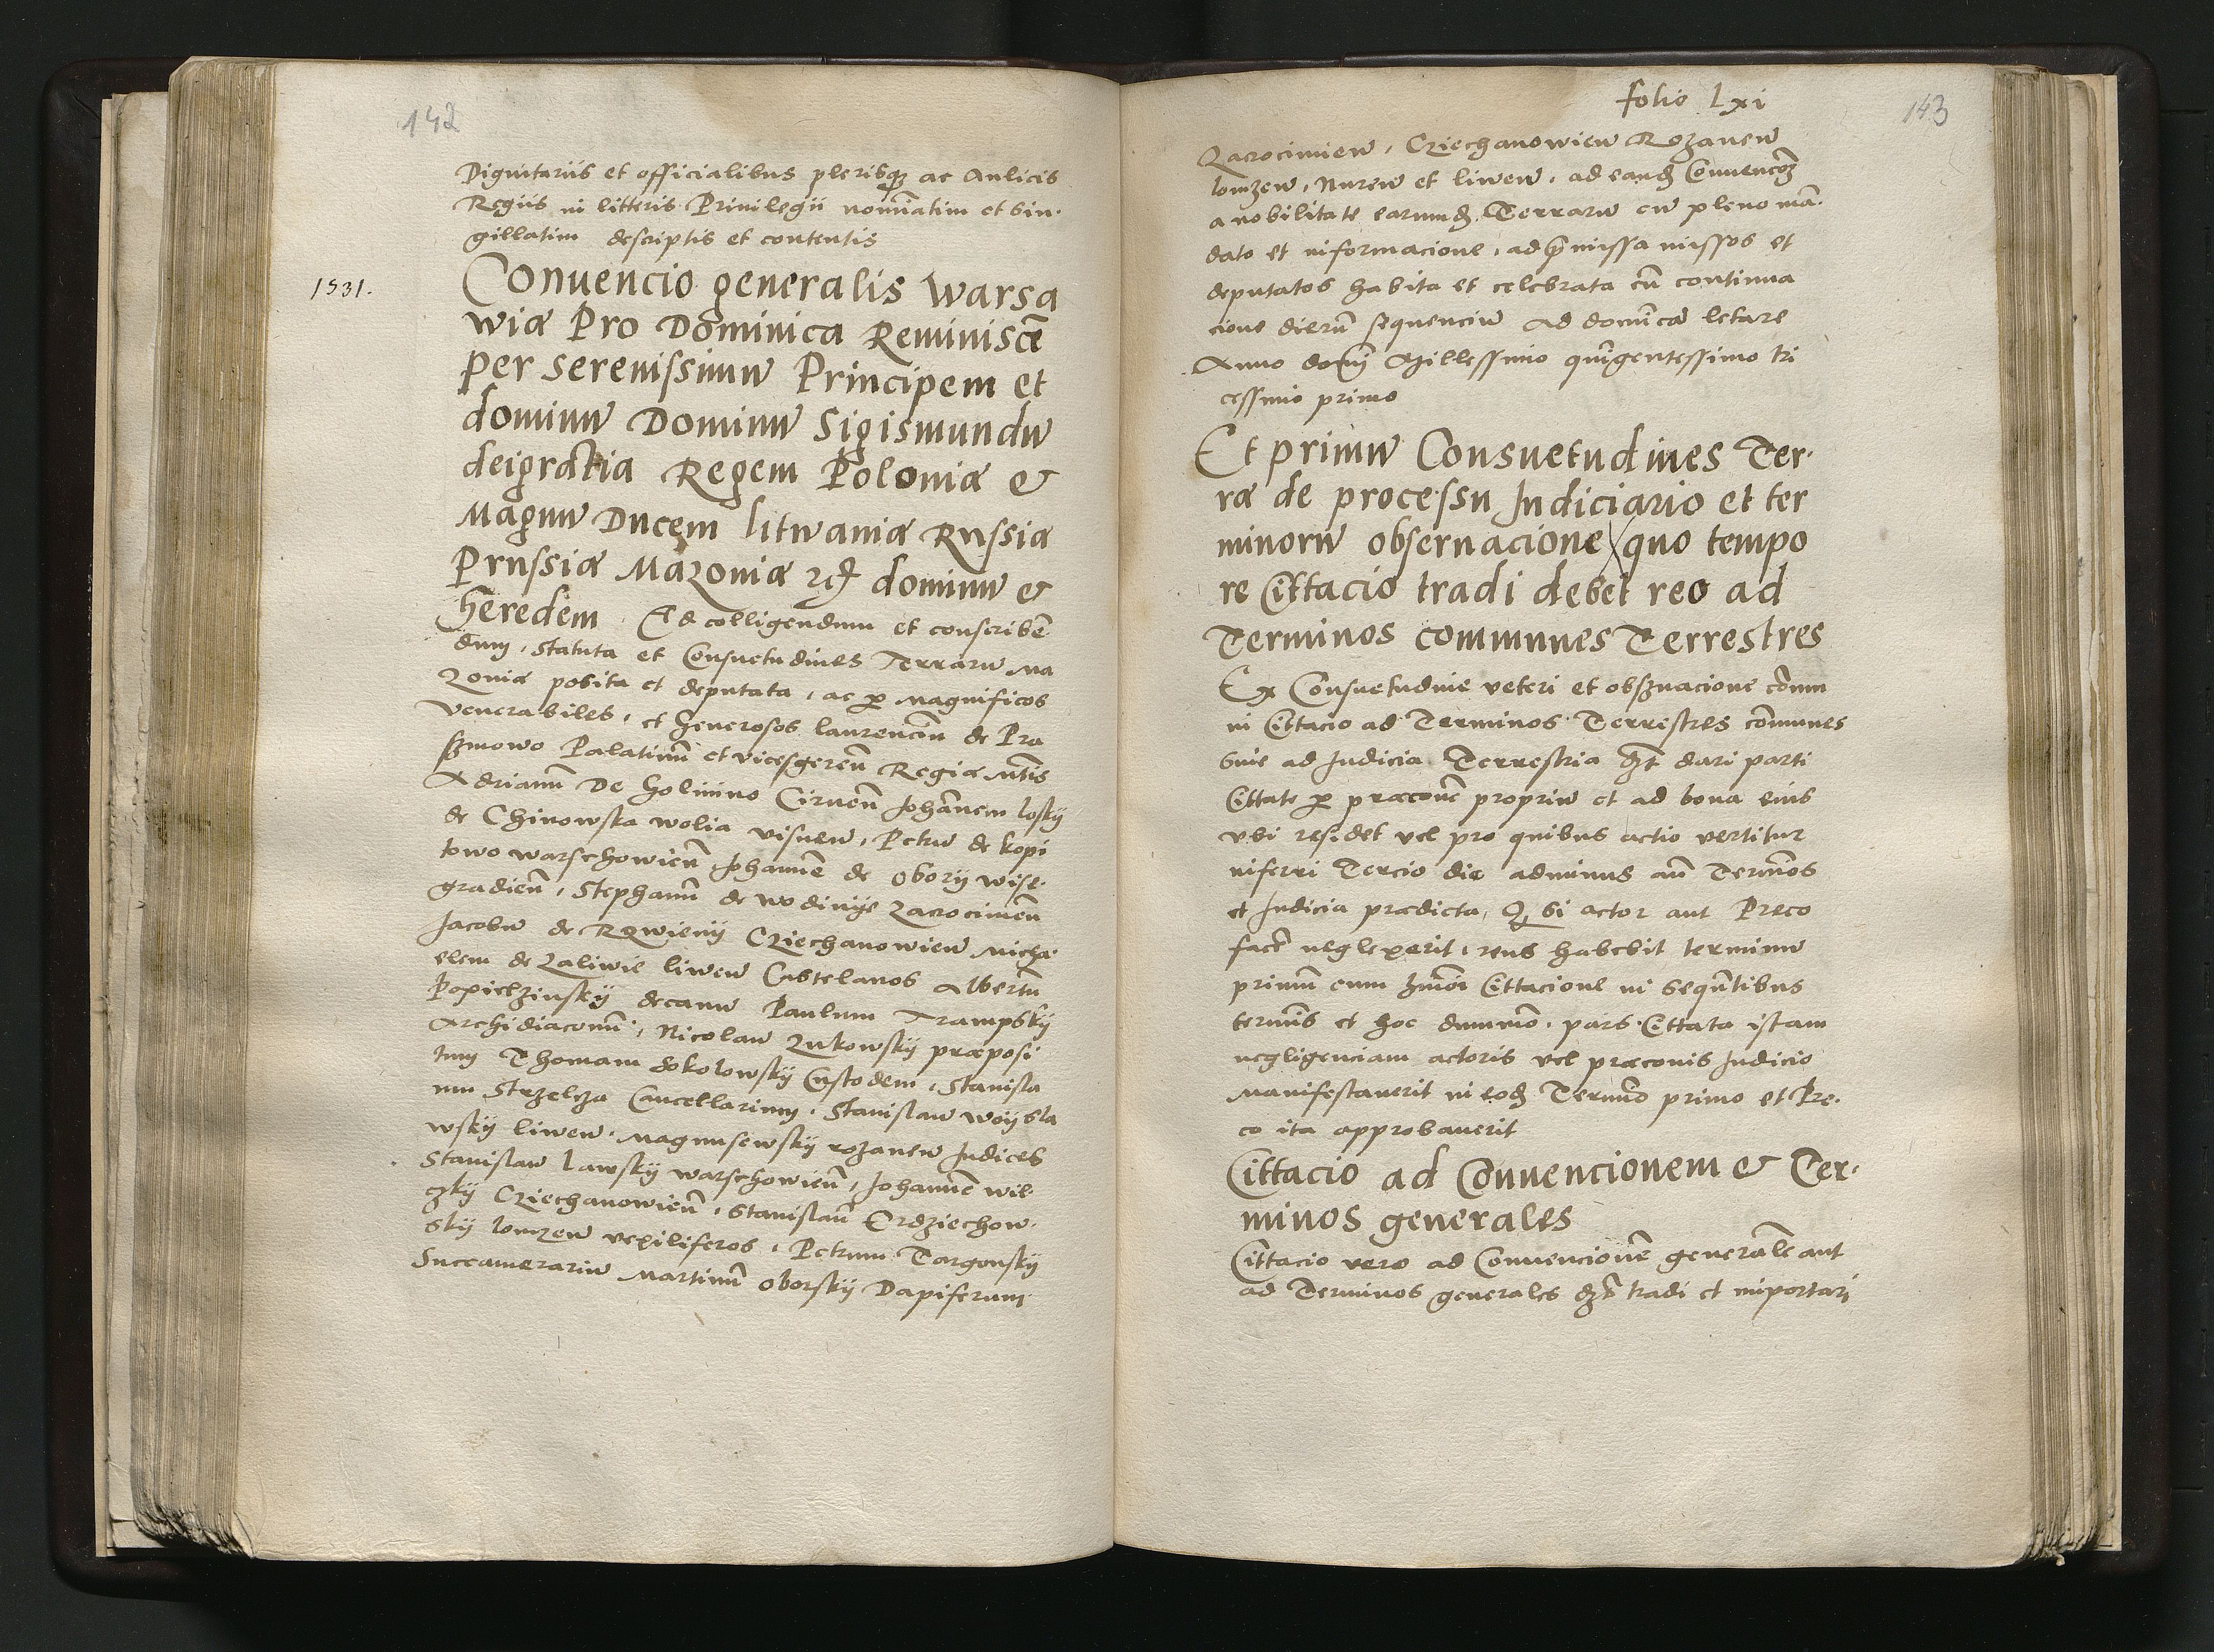 142
Dignitariis et officialibus plerisq₃ ac Aulicis
Regiis in litteris Priuilegii nomīatim et sin-
gillatim descriptis et contentis
1531.
Conuencio generalis Warsa
wiæ Pro Dominica Reminiscē
per serenissimū Principem et
dominū Dominū Sigismundū
deigratia Regem Poloniæ &
Magnū Ducem litwaniæ Russiæ
Prussiæ Mazoniæ zc̄ dominū &
heredem Ad colligendum et conscribē
dum, Statuta et Consuetudines Terrarū Ma
Zoniæ posita et deputata, ac p̱ Magnificos
Venerabiles, et Generosos laurenciū de Pra
szmowo Palatinū et vicesgereñ Regiæ Mtis
Adrianū De Golmino Cirneñ Johānem losky
de Chinowska wolia visneñ, Petrū de kopi
towo warschowieñ Johannē de Obory wise-
gradieñ, Stephanū de wodinye Zacrocimeñ
Jacobū de Rzwieny Cziechanowieñ Micha
elem de Zaliwie liweñ Castelanos Albertū
Popielzinsky decanū Paulum Trampsky
Archidiaconū, Nicolaū Zukowsky præposi
tum Thomam Sokolowsky Custodem, Stanisla
um Strzelcza Cancellarium, Stanislaū Woysla
wsky liweñ, Magnusewsky rozaneñ Judices
Stanislaū lawsky warschowieñ, Johannē wil-
czky Cziechanowieñ, Stanislaū Erdziechow-
sky lomzeñ vexiliferos, Petrum Targonsky
Succamerariū Martinū Oborsky Dapiferum
folio Lxi
143
Zacrocimieñ, Cziechanowieñ Rozaneñ
lomzeñ, Nureñ et liweñ, ad eanđ Conuencōȝ
a nobilitate earumđ Terrarū cū pleno mā-
dato et informacione, ad p̄missa missos et
deputatos habita et celebrata cū continua
cione dierū sequenciū Ad dominicā letare
Anno domī Millessimo quīgentessimo tri
cessimo primo
Et primū Consuetudines Ter-
ræ de processu Judiciario et ter
minorū obseruacione quo tempo
re Cittacio tradi debet reo ad
Terminos communes Terrestres
Ex Consuetudine veteri et obsȝuacione cōmu
ni Cittacio ad Terminos Terrestres cōmunes
siue ad Judicia Terrestria đȝt dari parti
Cittate p̱ præconē propriū et ad bona eius
vbi residet vel pro quibus actio vertitur
inferri Tercio die adminus añ Termīos
et Judicia prædicta, Qȝ si actor aut Preco
facē neglexerit, reus habebit terminū
primū cum hmōi Cittacione in sequētibus
termīs et hoc dummō, pars Cittata istam
negligenciam actoris vel præconis Judicio
Manifestauerit in eođ Termīo primo et Pre-
co ita approbauerit
Cittacio ad Conuencionem & Ter-
minos generales
Cittacio vero ad Conuencionē generalē aut
ad Terminos generales đȝt tradi et importari